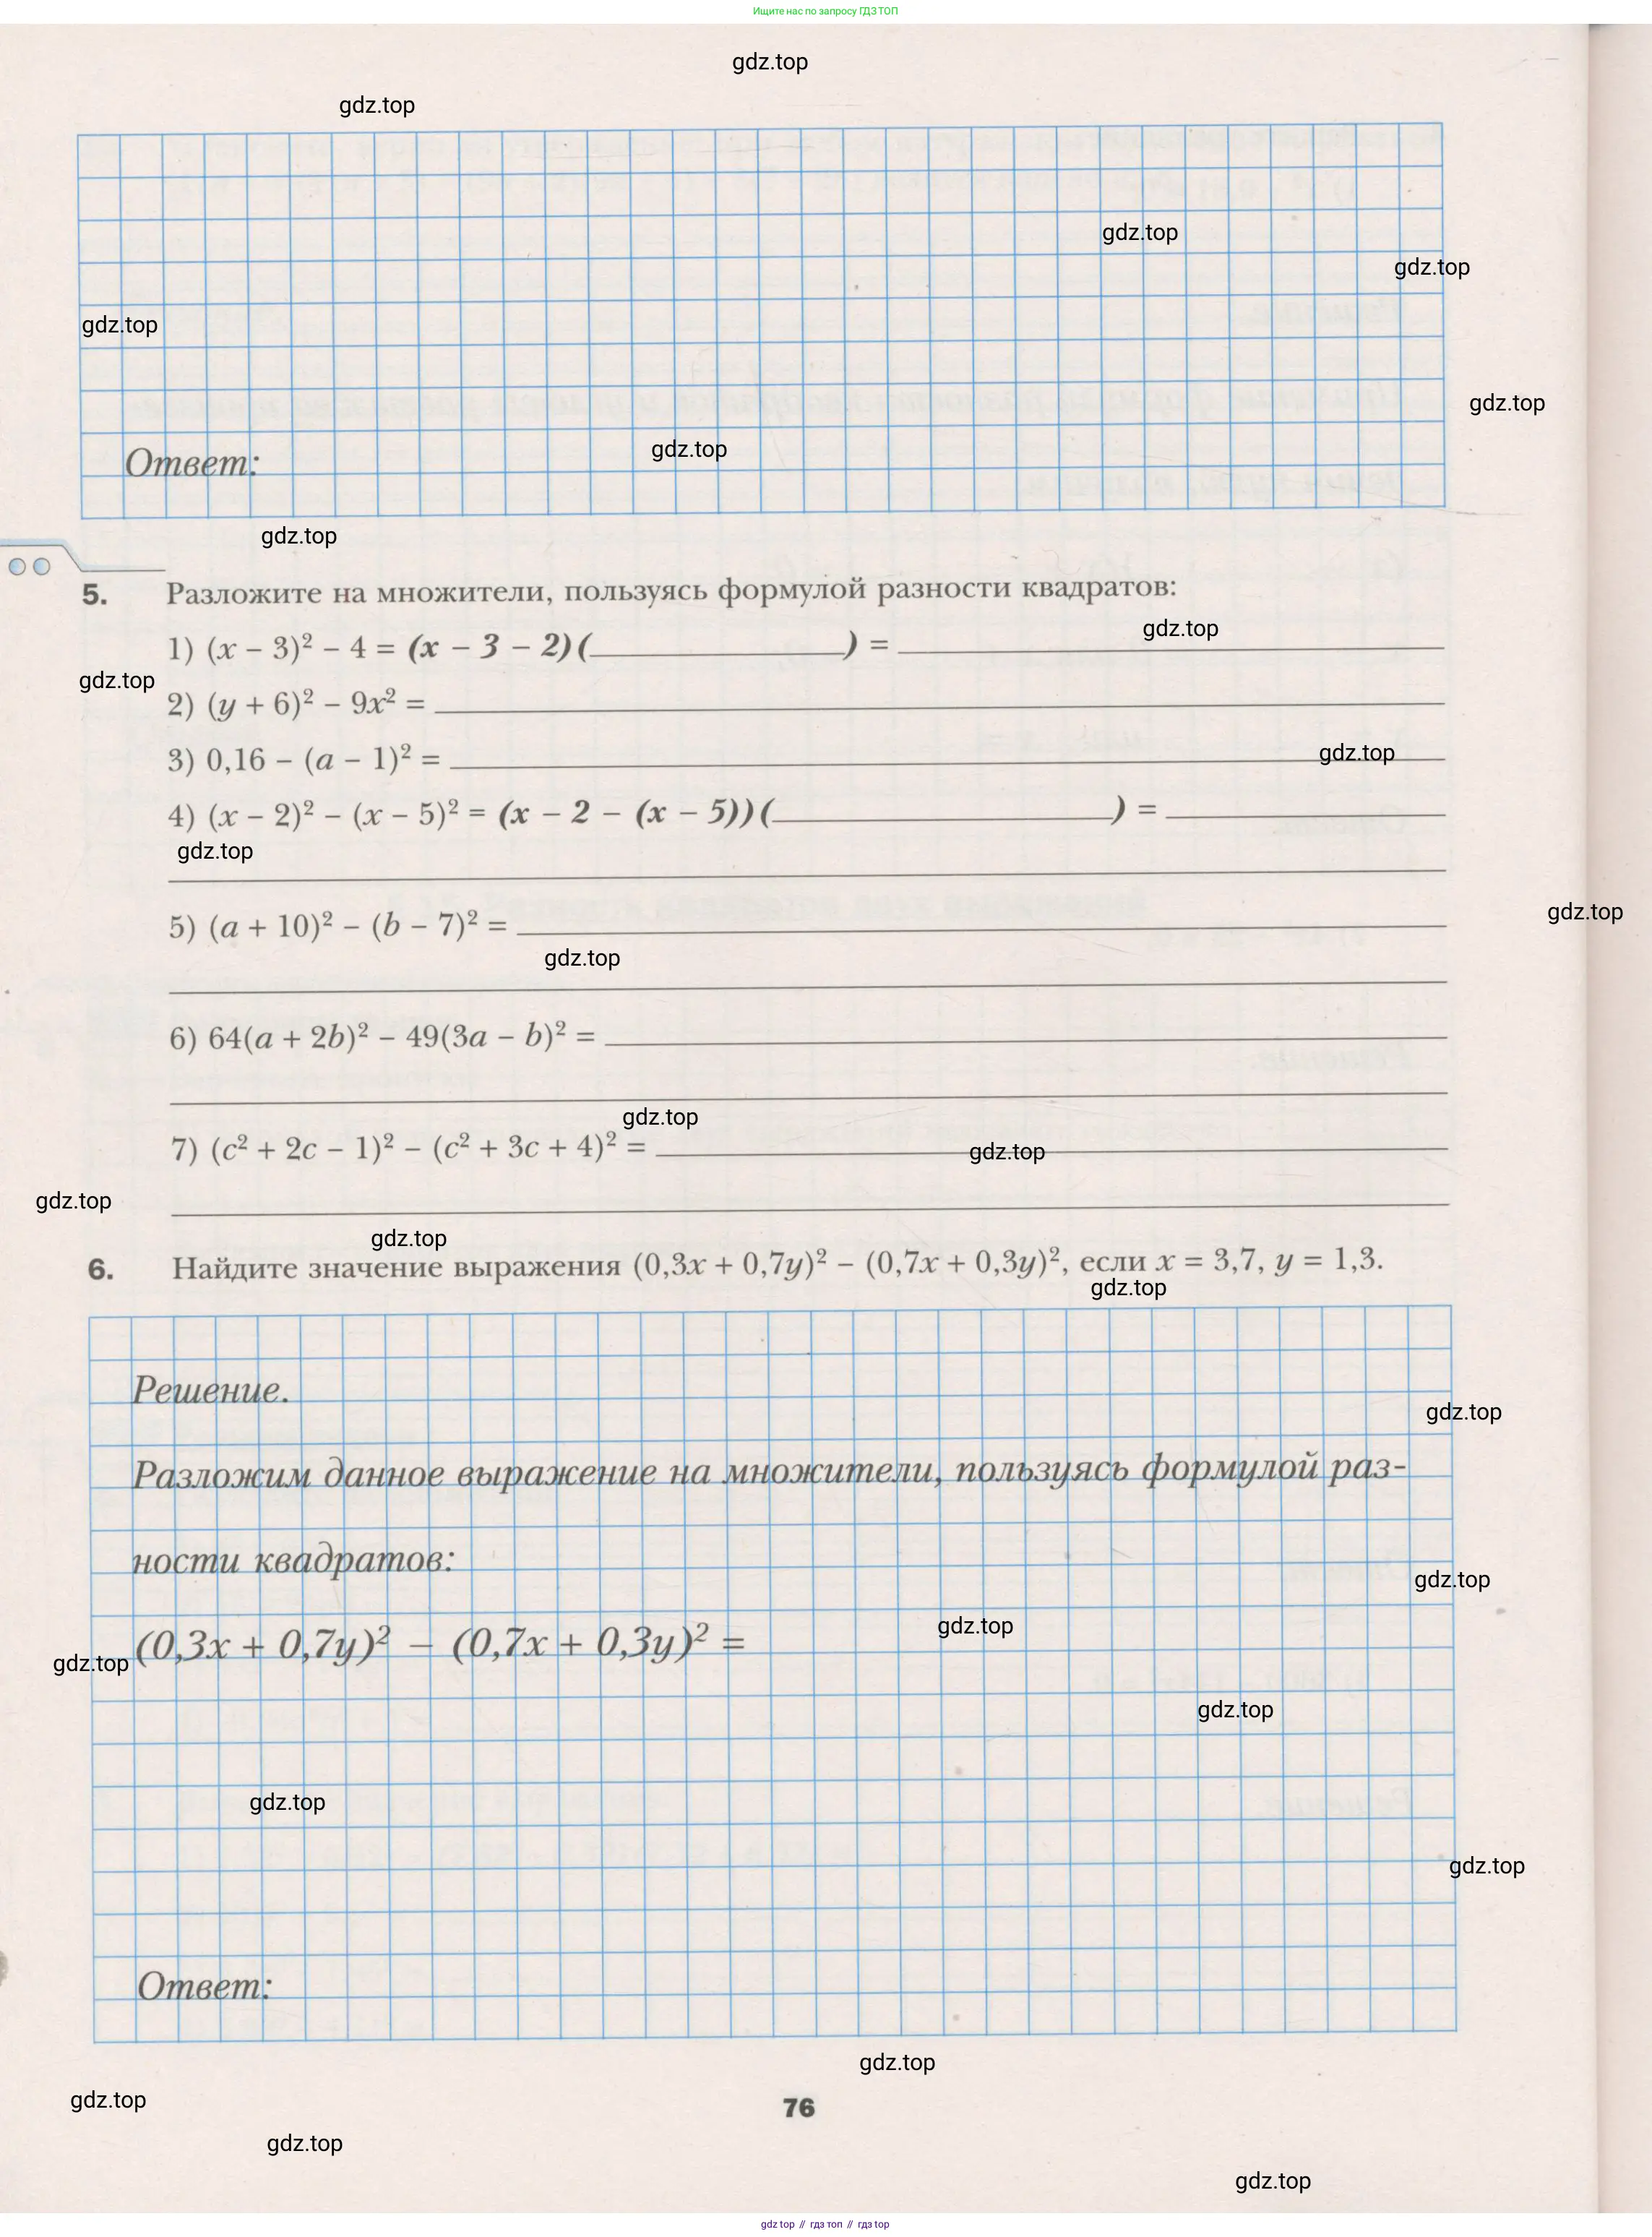 Ищите нас по запросу ГДЗ ТОП
gdz.top
gdz.top
gdz.top
gdz.top
gdz.top
gdz.top
gdz.top
Ответ:
gdz.top
5. Разложите на множители, пользуясь формулой разности квадратов:
gdz.top
1) (x − 3)² − 4 = (x − 3 − 2)(____) = ____
gdz.top
2) (y + 6)² − 9x² = ____
gdz.top
3) 0,16 − (a − 1)² = ____
4) (x − 2)² − (x − 5)² = (x − 2 − (x − 5))(____) = ____
gdz.top
gdz.top
5) (a + 10)² − (b − 7)² = ____
gdz.top
6) 64(a + 2b)² − 49(3a − b)² = ____
gdz.top
7) (c² + 2c − 1)² − (c² + 3c + 4)² = ____
gdz.top
gdz.top
gdz.top
6. Найдите значение выражения (0,3x + 0,7y)² − (0,7x + 0,3y)², если x = 3,7, y = 1,3.
gdz.top
Решение.
gdz.top
Разложим данное выражение на множители, пользуясь формулой раз-
ности квадратов:
gdz.top
gdz.top
(0,3x + 0,7y)² − (0,7x + 0,3y)² =
gdz.top
gdz.top
gdz.top
gdz.top
Ответ:
gdz.top
gdz.top
76
gdz.top
gdz.top
gdz.top // гдз топ // гдз top